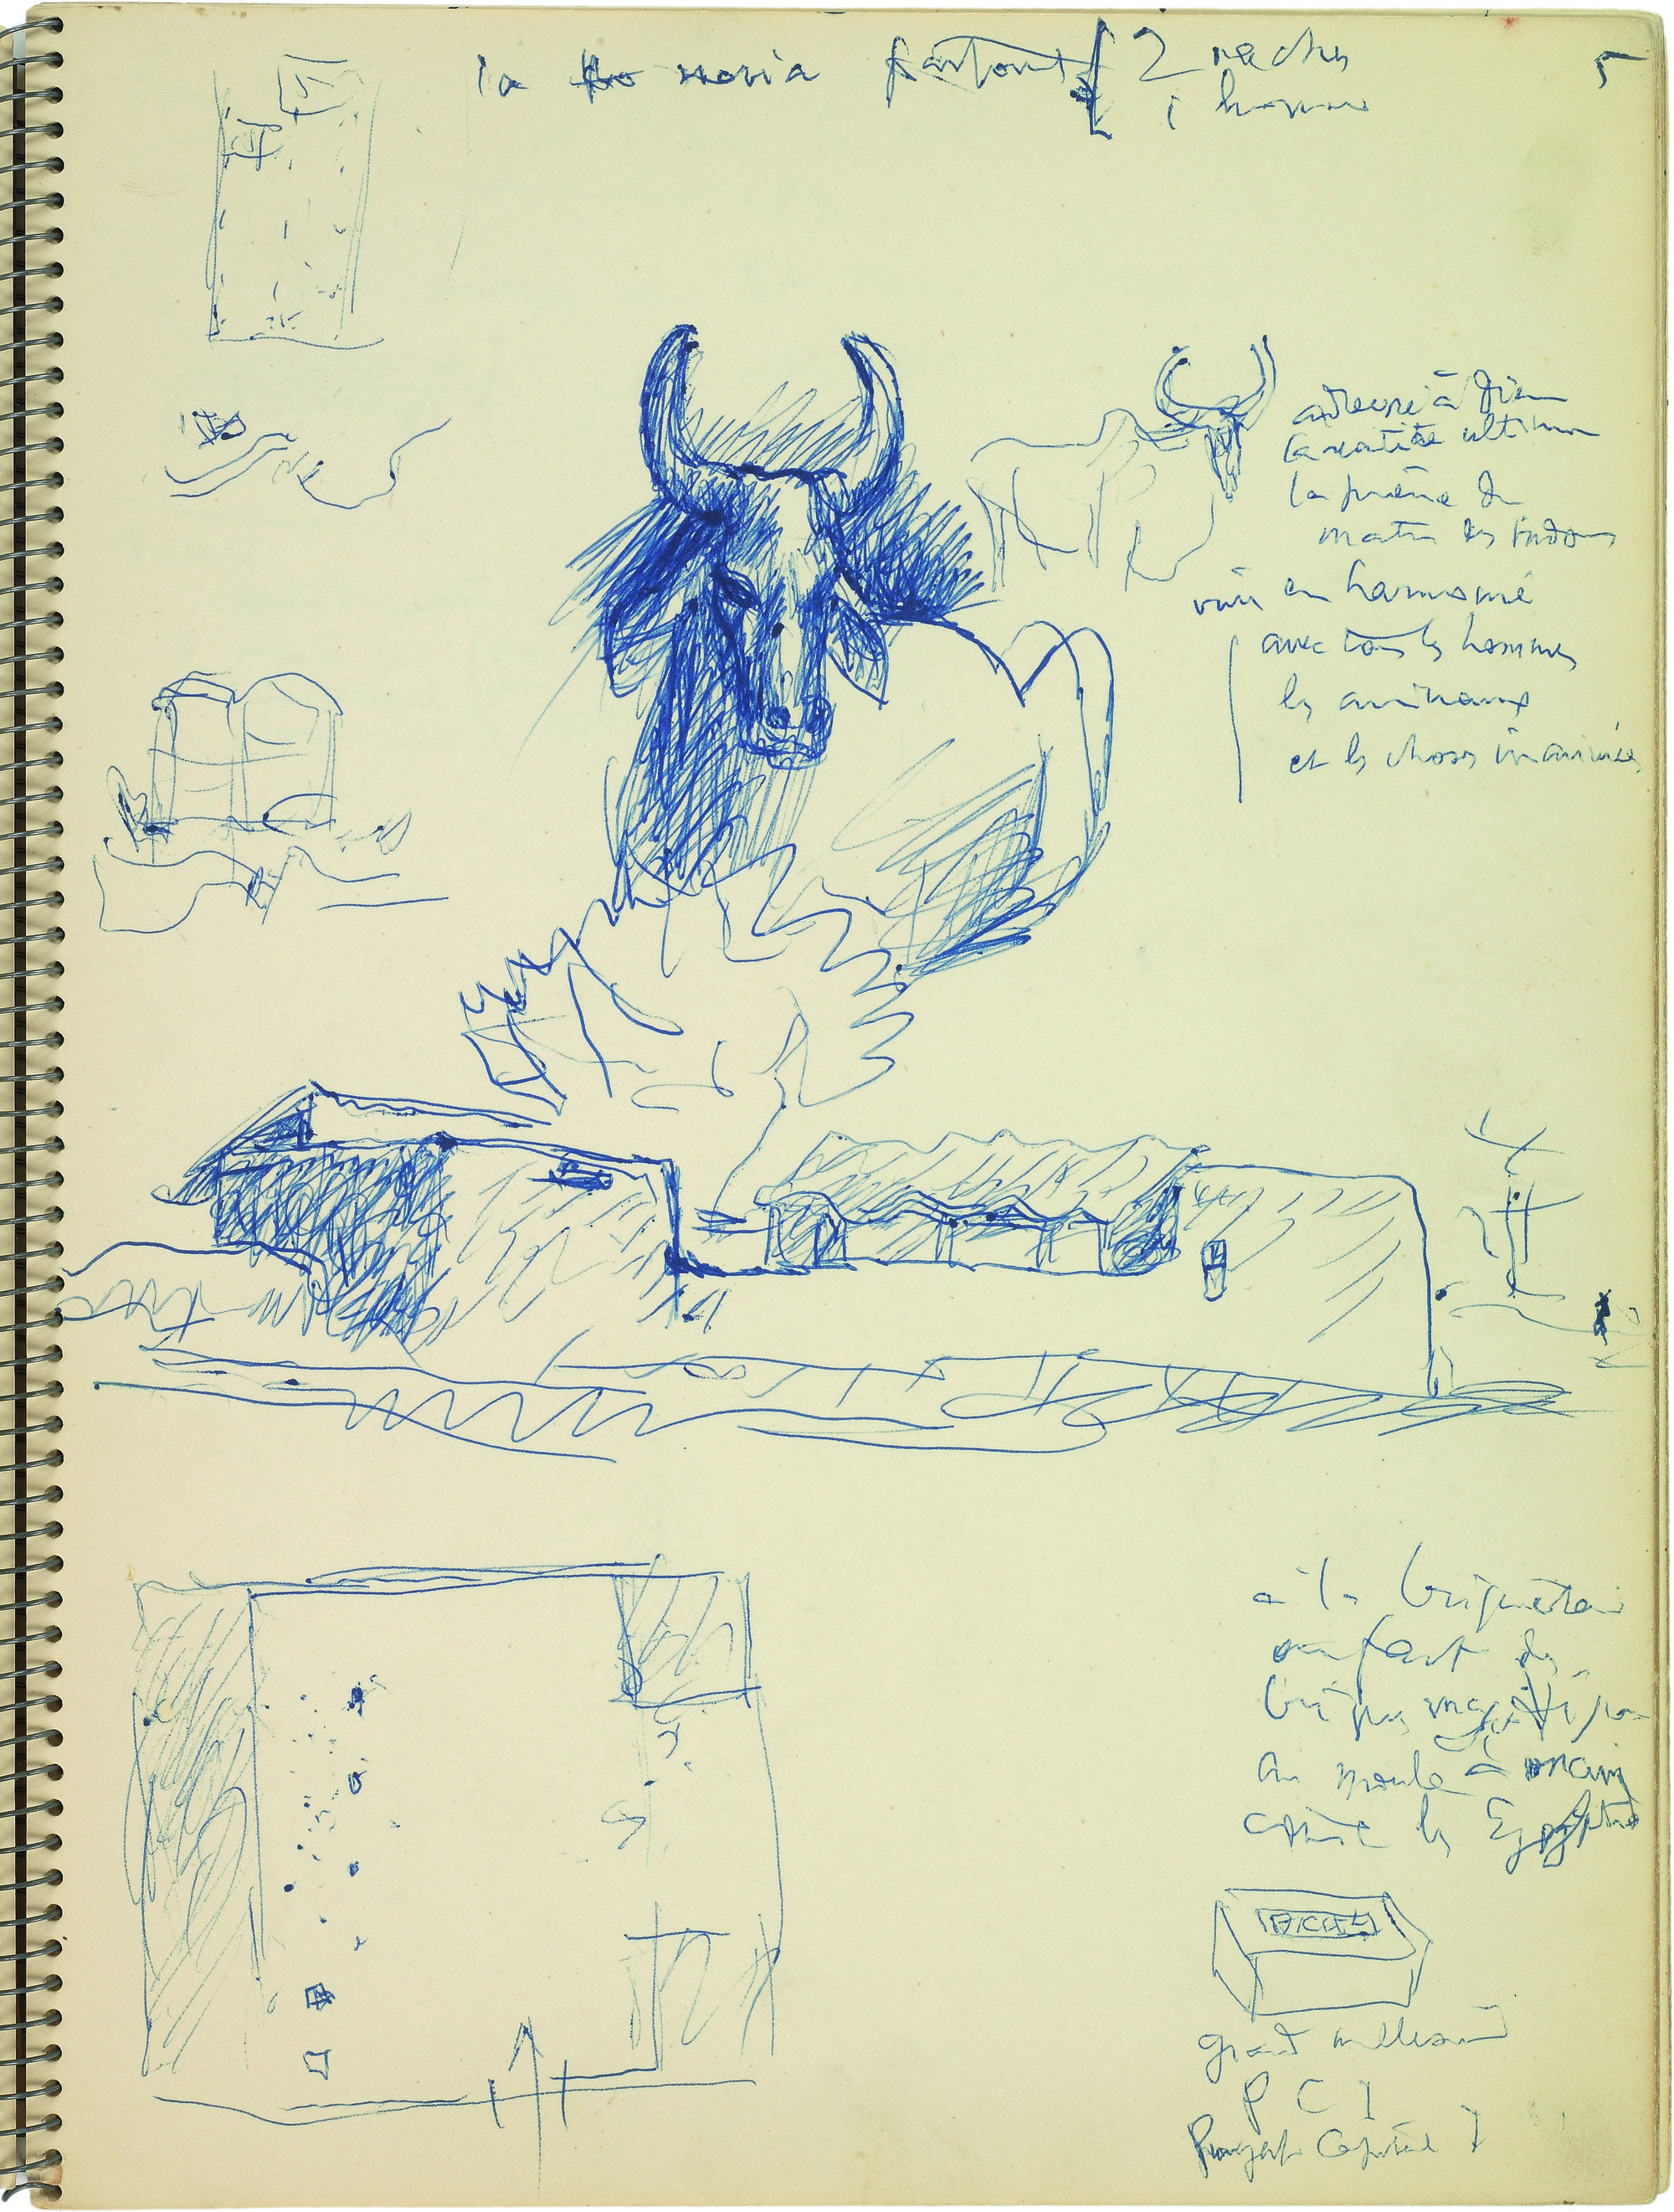 la noria partout 2 vaches
1 homme
5
adressé à Dieu
la vérité ultime
la prière du
matin des hindous
vivre en harmonie
avec tous les hommes
les animaux
et les choses inanimées
à la briqueterie
on fait des
briques
au moule à main
comme les Egyptiens
grand
P C I
Punjab Capital I